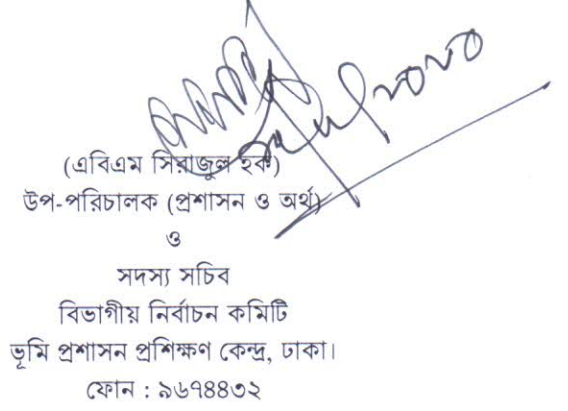 (এবিএম সিরাজুল হক)
উপ-পরিচালক (প্রশাসন ও অর্থ)
ও
সদস্য সচিব
বিভাগীয় নির্বাচন কমিটি
ভূমি প্রশাসন প্রশিক্ষণ কেন্দ্র, ঢাকা।
ফোন : ৯৬৭৪৪৩২